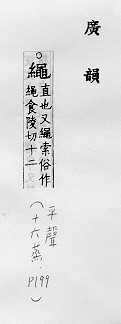 廣韻
繩
直也又繩索俗作
繩食陵切十二
(平聲
十六蒸.P199)